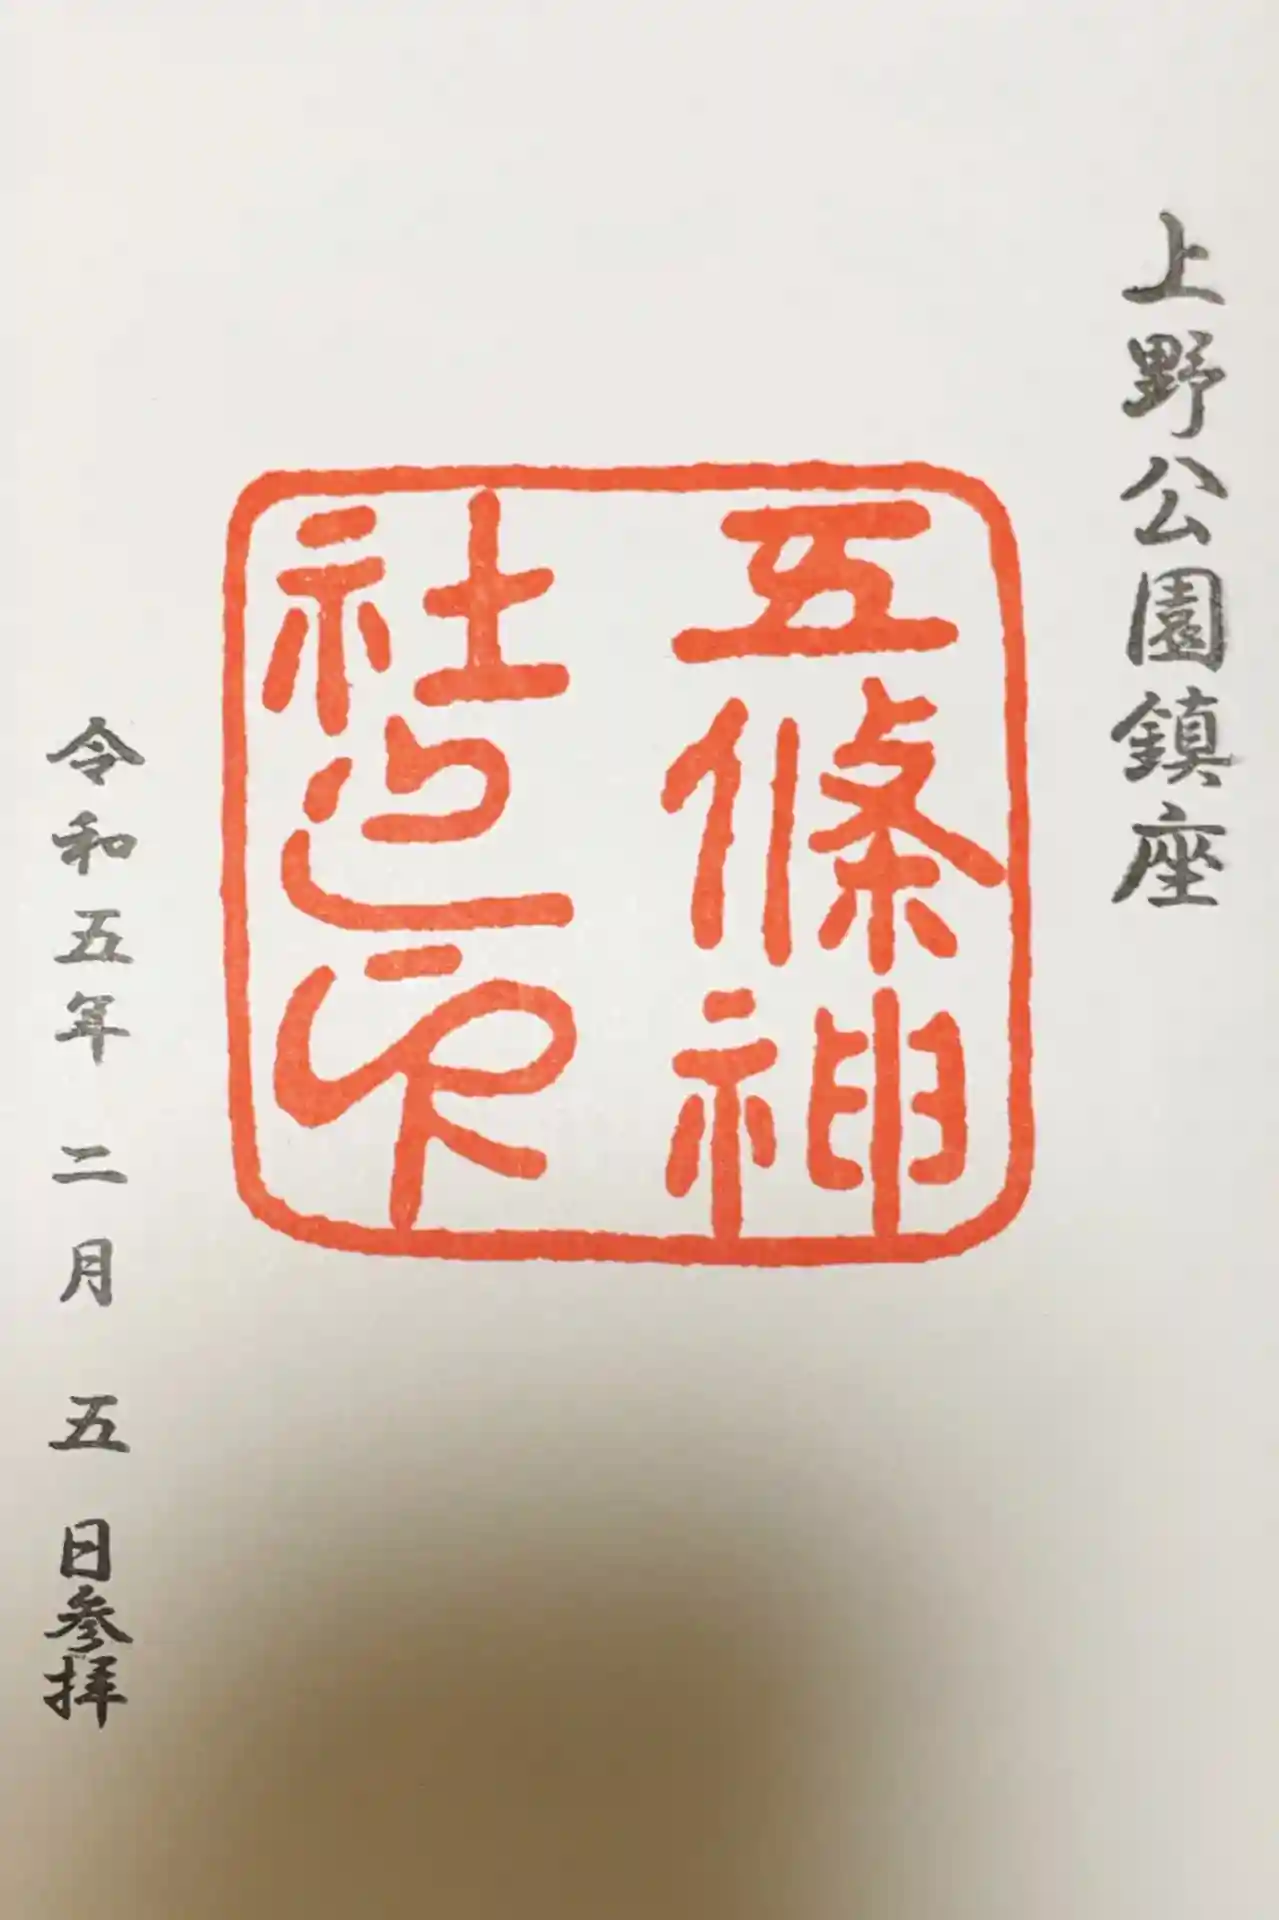 上野公園鎮座
五條神
社之印
令和五年二月五日参拝